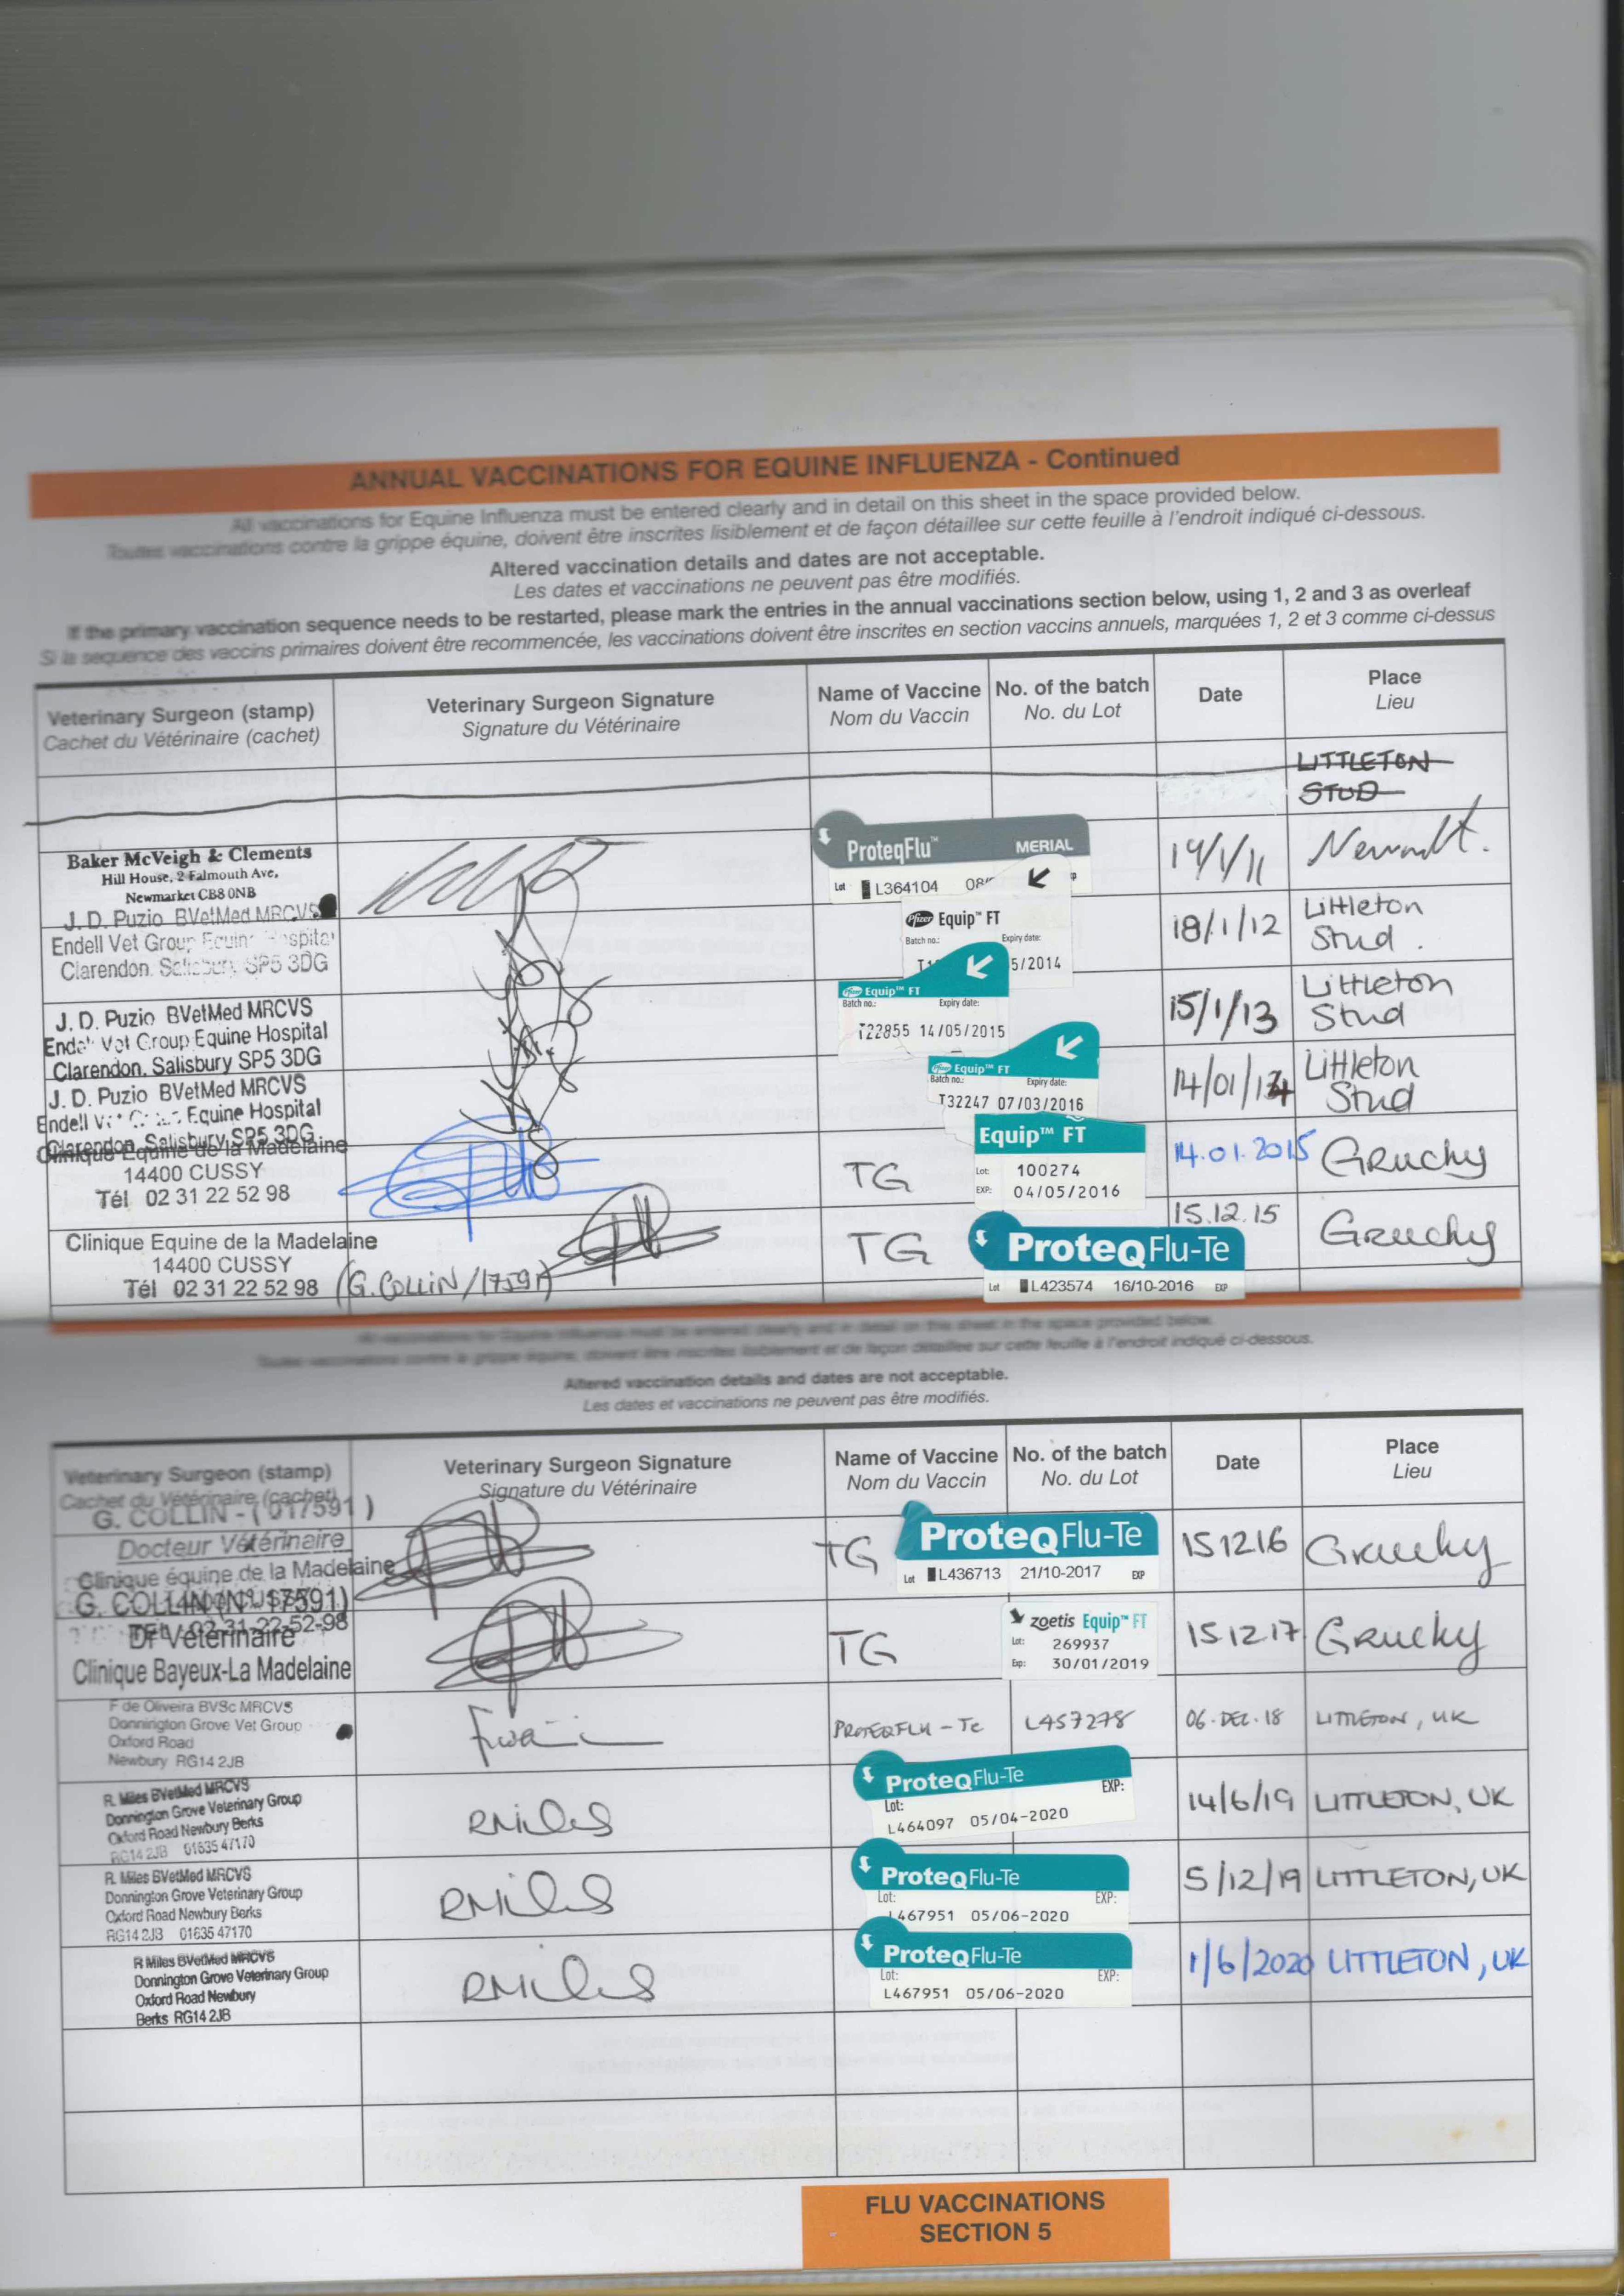 ANNUAL VACCINATIONS FOR EQUINE INFLUENZA - Continued
All vaccinations for Equine Influenza must be entered clearly and in detail on this sheet in the space provided below.
Toutes vaccinations contre la grippe équine, doivent être inscrites lisiblement et de façon détaillee sur cette feuille à l'endroit indiqué ci-dessous.
Altered vaccination details and dates are not acceptable.
Les dates et vaccinations ne peuvent pas être modifiés.
If the primary vaccination sequence needs to be restarted, please mark the entries in the annual vaccinations section below, using 1, 2 and 3 as overleaf
Si la sequence des vaccins primaires doivent être recommencée, les vaccinations doivent être inscrites en section vaccins annuels, marquées 1, 2 et 3 comme ci-dessus
Veterinary Surgeon (stamp)
Cachet du Vétérinaire (cachet)
Veterinary Surgeon Signature
Signature du Vétérinaire
Name of Vaccine
Nom du Vaccin
No. of the batch
No. du Lot
Date
Place
Lieu
LITTLETON
STUD
Baker McVeigh & Clements
Hill House, 2 Falmouth Ave,
Newmarket CB8 0NB
ProteqFlu™ MERIAL
Lot L364104 08/
14/1/11
J. D. Puzio BVetMed MRCVS
Endell Vet Group Equine Hospital
Clarendon, Salisbury SP5 3DG
Pfizer Equip™ FT
Batch no.: Expiry date:
5/2014
18/1/12
Littleton
Stud.
J. D. Puzio BVetMed MRCVS
Endell Vet Group Equine Hospital
Clarendon, Salisbury SP5 3DG
Pfizer Equip™ FT
Batch no.: Expiry date:
T22855 14/05/2015
15/1/13
Littleton
Stud
J. D. Puzio BVetMed MRCVS
Endell Vet Group Equine Hospital
Clarendon, Salisbury SP5 3DG
Pfizer Equip™ FT
Batch no.: Expiry date:
T32247 07/03/2016
14/01/14
Littleton
Stud
Clinique Equine de la Madelaine
14400 CUSSY
Tél 02 31 22 52 98
TG
Equip™ FT
Lot: 100274
EXP: 04/05/2016
14.01.2015
Gruchy
Clinique Equine de la Madelaine
14400 CUSSY
Tél 02 31 22 52 98
(G. COLLIN/17591)
TG
ProteqFlu-Te
Lot L423574 16/10-2016 EXP
15.12.15
Gruchy
All vaccinations for Equine Influenza must be entered clearly and in detail on this sheet in the space provided below.
Toutes vaccinations contre la grippe équine, doivent être inscrites lisiblement et de façon détaillee sur cette feuille à l'endroit indiqué ci-dessous.
Altered vaccination details and dates are not acceptable.
Les dates et vaccinations ne peuvent pas être modifiés.
Veterinary Surgeon (stamp)
Cachet du Vétérinaire (cachet)
Veterinary Surgeon Signature
Signature du Vétérinaire
Name of Vaccine
Nom du Vaccin
No. of the batch
No. du Lot
Date
Place
Lieu
G. COLLIN - (017591)
Docteur Vétérinaire
Clinique équine de la Madelaine
14400 CUSSY
Tél : 02-31-22-52-98
TG
ProteqFlu-Te
Lot L436713 21/10-2017 EXP
151216
Gruchy
G. COLLIN (N° 17591)
Dr Vétérinaire
Clinique Bayeux-La Madelaine
TG
zoetis Equip™ FT
Lot: 269937
Exp: 30/01/2019
151217
Gruchy
F de Oliveira BVSc MRCVS
Donnington Grove Vet Group
Oxford Road
Newbury RG14 2JB
PROTEQFLU - Te
L457278
06.DEC.18
LITTLETON, UK
R. Miles BVetMed MRCVS
Donnington Grove Veterinary Group
Oxford Road Newbury Berks
RG14 2JB 01635 47170
RMiles
ProteqFlu-Te
Lot: EXP:
L464097 05/04-2020
14/6/19
LITTLETON, UK
R. Miles BVetMed MRCVS
Donnington Grove Veterinary Group
Oxford Road Newbury Berks
RG14 2JB 01635 47170
RMiles
ProteqFlu-Te
Lot: EXP:
L467951 05/06-2020
5/12/19
LITTLETON, UK
R Miles BVetMed MRCVS
Donnington Grove Veterinary Group
Oxford Road Newbury
Berks RG14 2JB
RMiles
ProteqFlu-Te
Lot: EXP:
L467951 05/06-2020
1/6/2020
LITTLETON, UK
FLU VACCINATIONS
SECTION 5